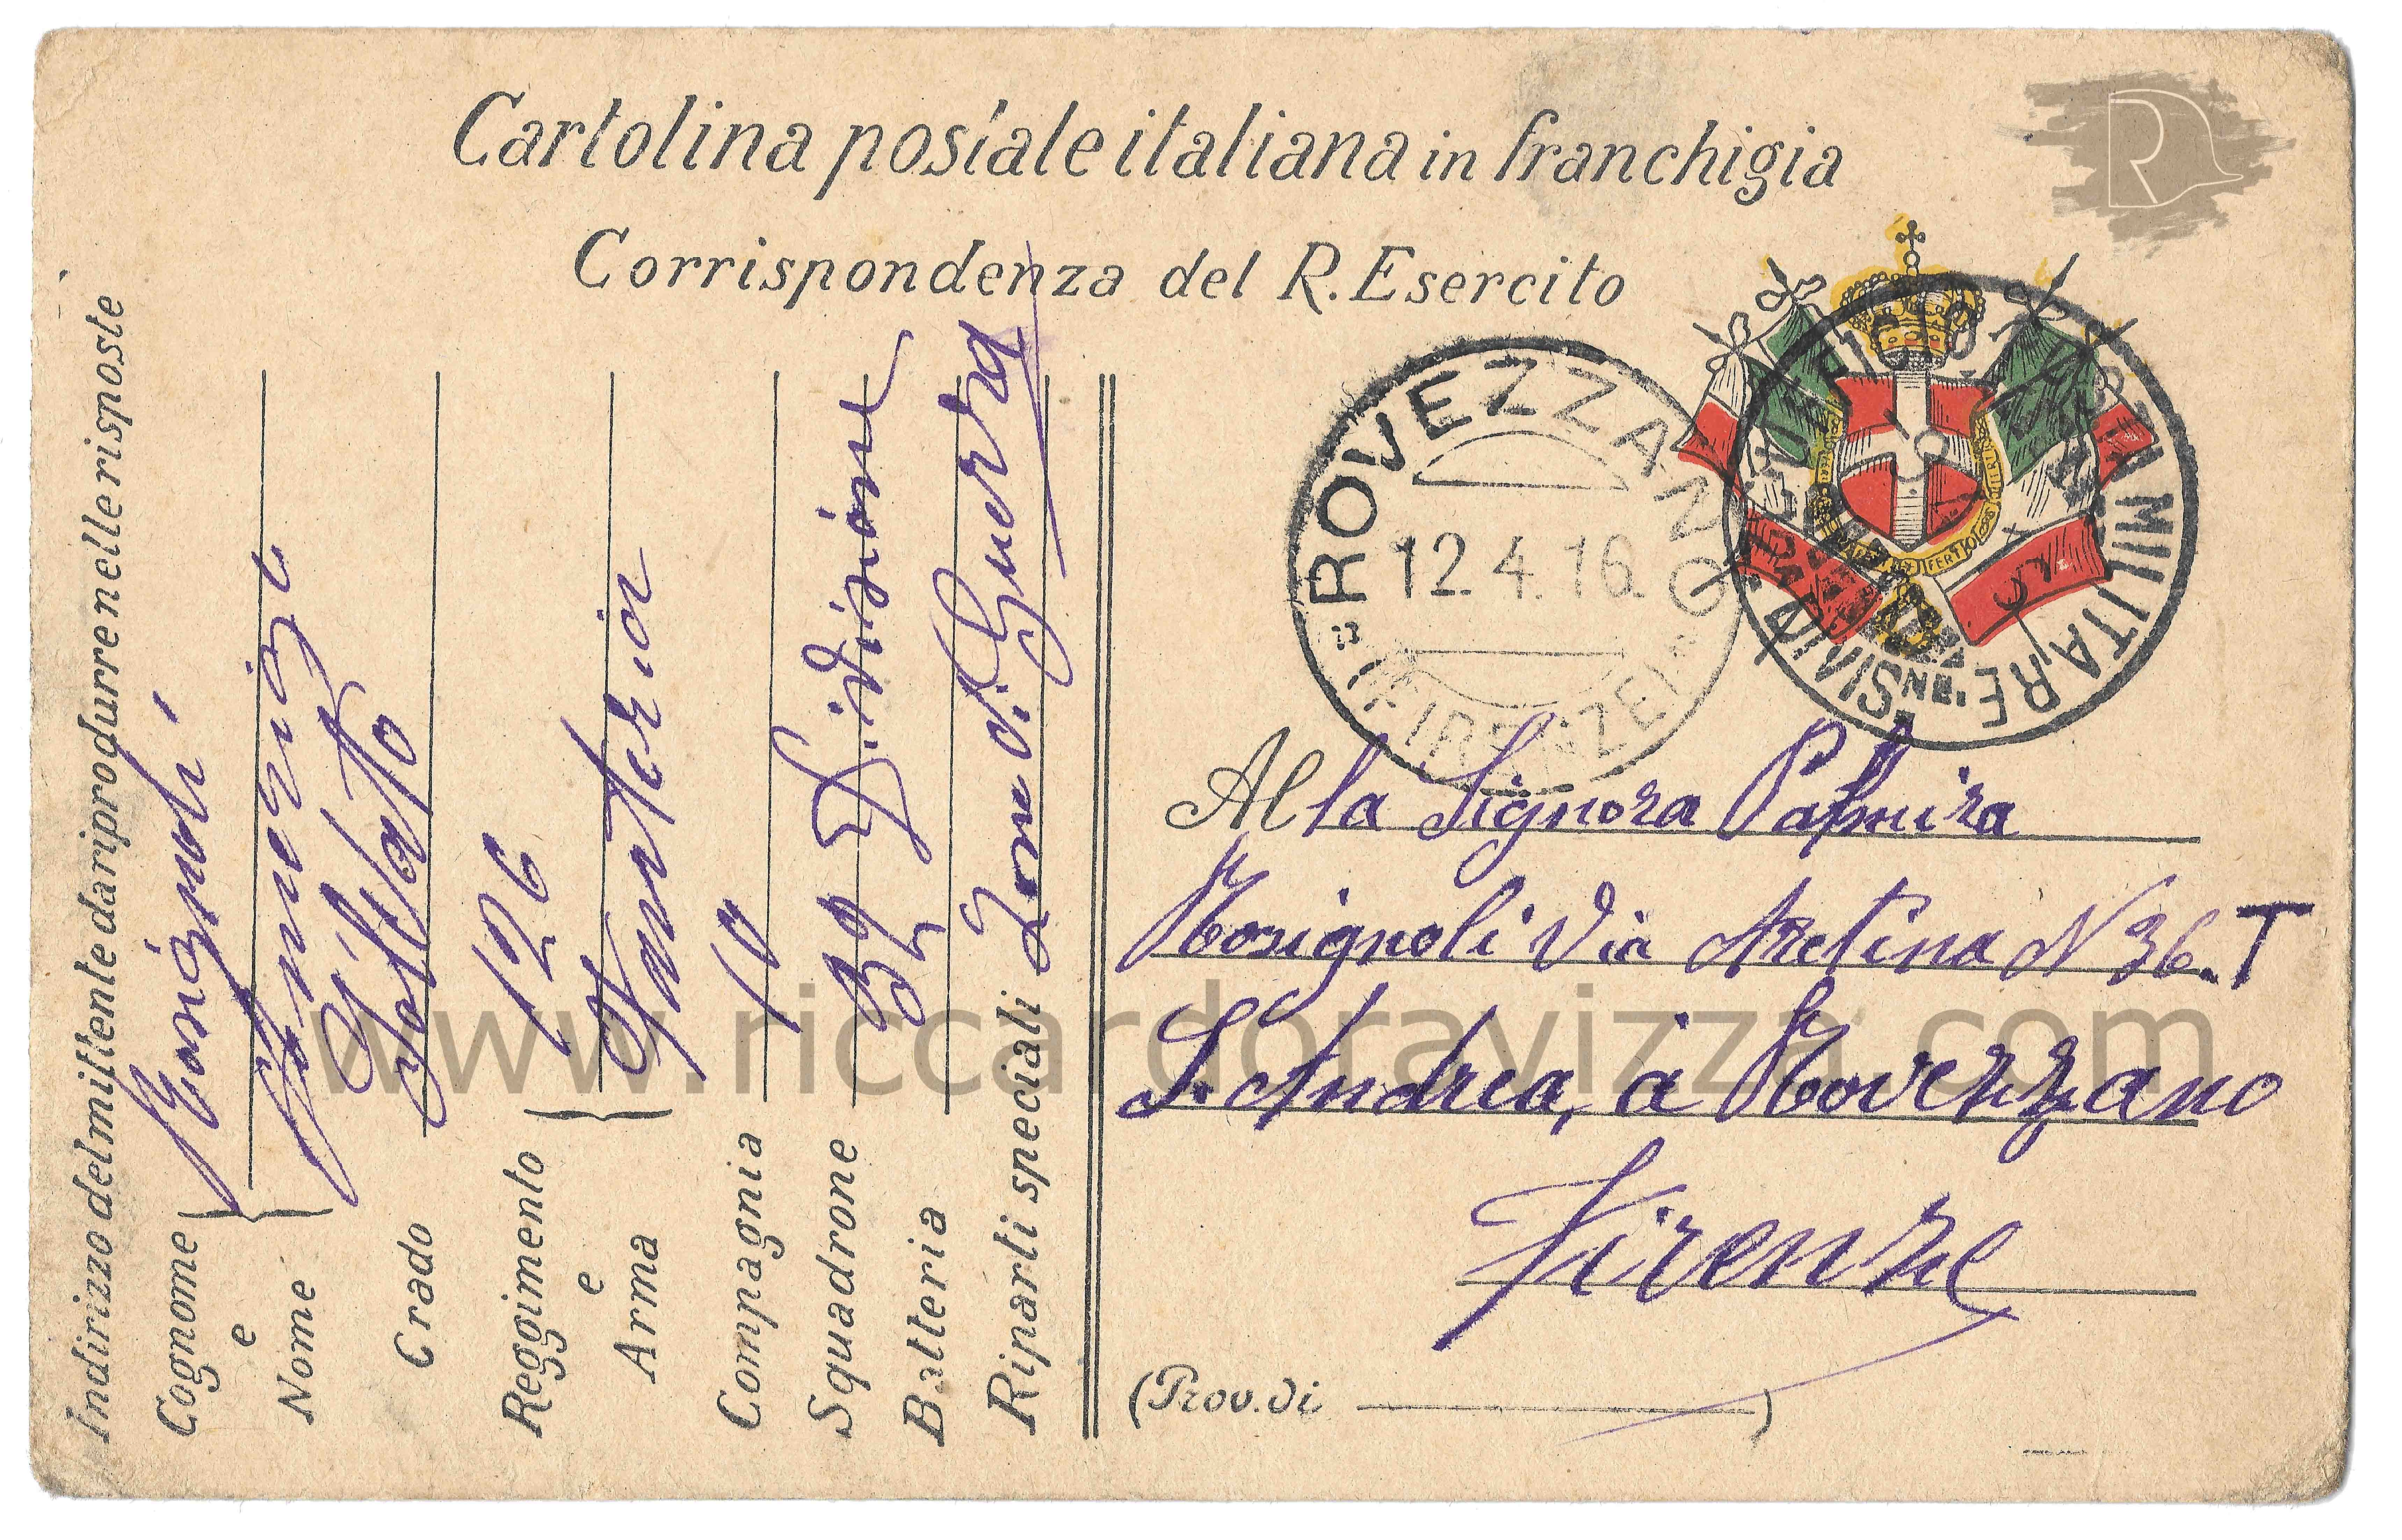 Cartolina postale italiana in franchigia
Corrispondenza del R. Esercito
ROVEZZANO
12.4.16.
(FIRENZE)
POSTA MILITARE
DIVISNE.
Indirizzo del mittente da riprodurre nelle risposte
Cognome e Nome
Rosignoli
Amerigo
Grado
Soldato
Reggimento e Arma
126
Fanteria
Compagnia 10
Squadrone 32 Divisione
Batteria
Riparti speciali Zona di Guerra
Alla Signora Palmira
Rosignoli Via Aretina N 36. T
S. Andrea, a Rovezzano
Firenze
(Prov. di )
FERT
www.riccardoravizza.com
R